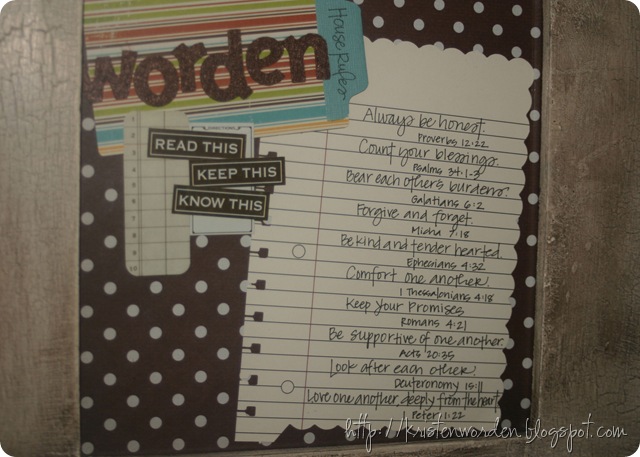 worden
House Rules
READ THIS
KEEP THIS
KNOW THIS
Always be honest.
Proverbs 12:22
Count your blessings.
Psalms 34:1-3
Bear each others burdens.
Galatians 6:2
Forgive and forget.
Micha 7:18
Be kind and tender hearted.
Ephecians 4:32
Comfort one another.
1 Thessalonians 4:18
Keep your Promises
Romans 4:21
Be supportive of one another.
Acts 20:35
Look after each other.
Deuteronomy 15:11
Love one another, deeply from the heart
1 Peter 1:22
http://kristenworden.blogspot.com